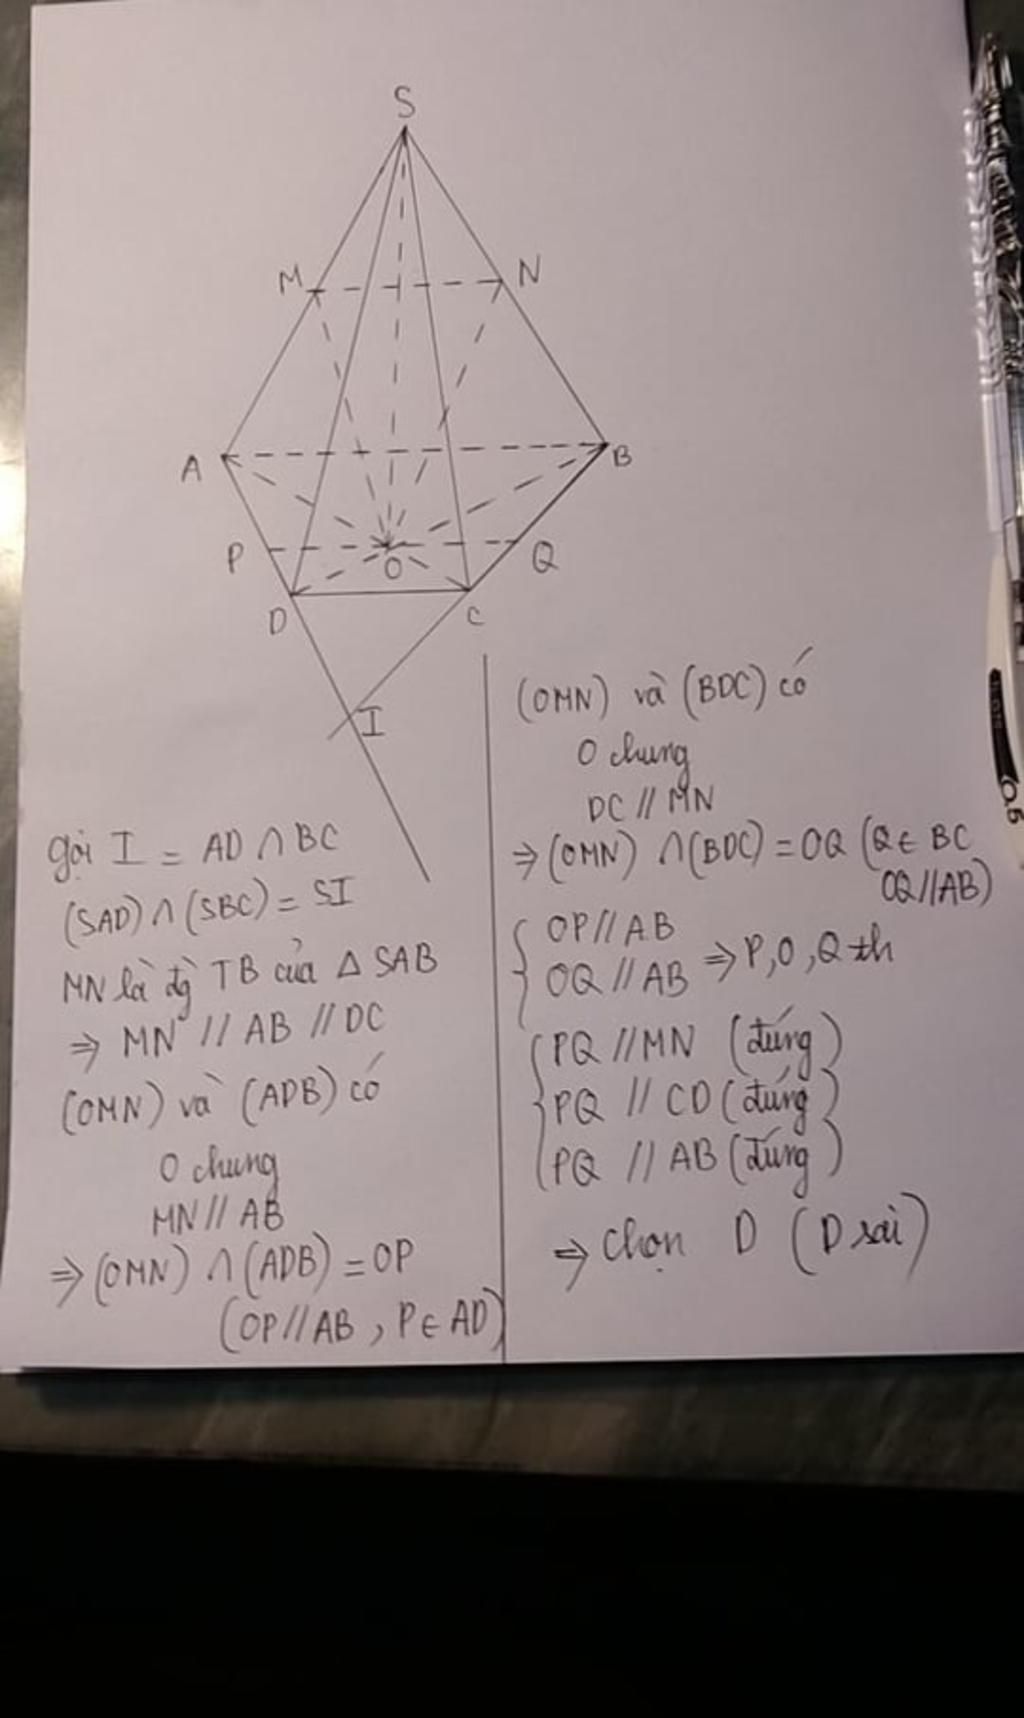 S
M
N
A
B
P
O
Q
D
C
I
gọi I = AD ∩ BC
(SAD) ∩ (SBC) = SI
MN là đg TB của Δ SAB
⇒ MN // AB // DC
(OMN) và (ADB) có
O chung
MN // AB
⇒ (OMN) ∩ (ADB) = OP
(OP // AB , P ∈ AD)
(OMN) và (BDC) có
O chung
DC // MN
⇒ (OMN) ∩ (BDC) = OQ (Q ∈ BC
OQ // AB)
OP // AB
OQ // AB ⇒ P, O, Q th
PQ // MN (đúng)
PQ // CD (đúng)
PQ // AB (đúng)
⇒ Chọn D (D sai)
0.5